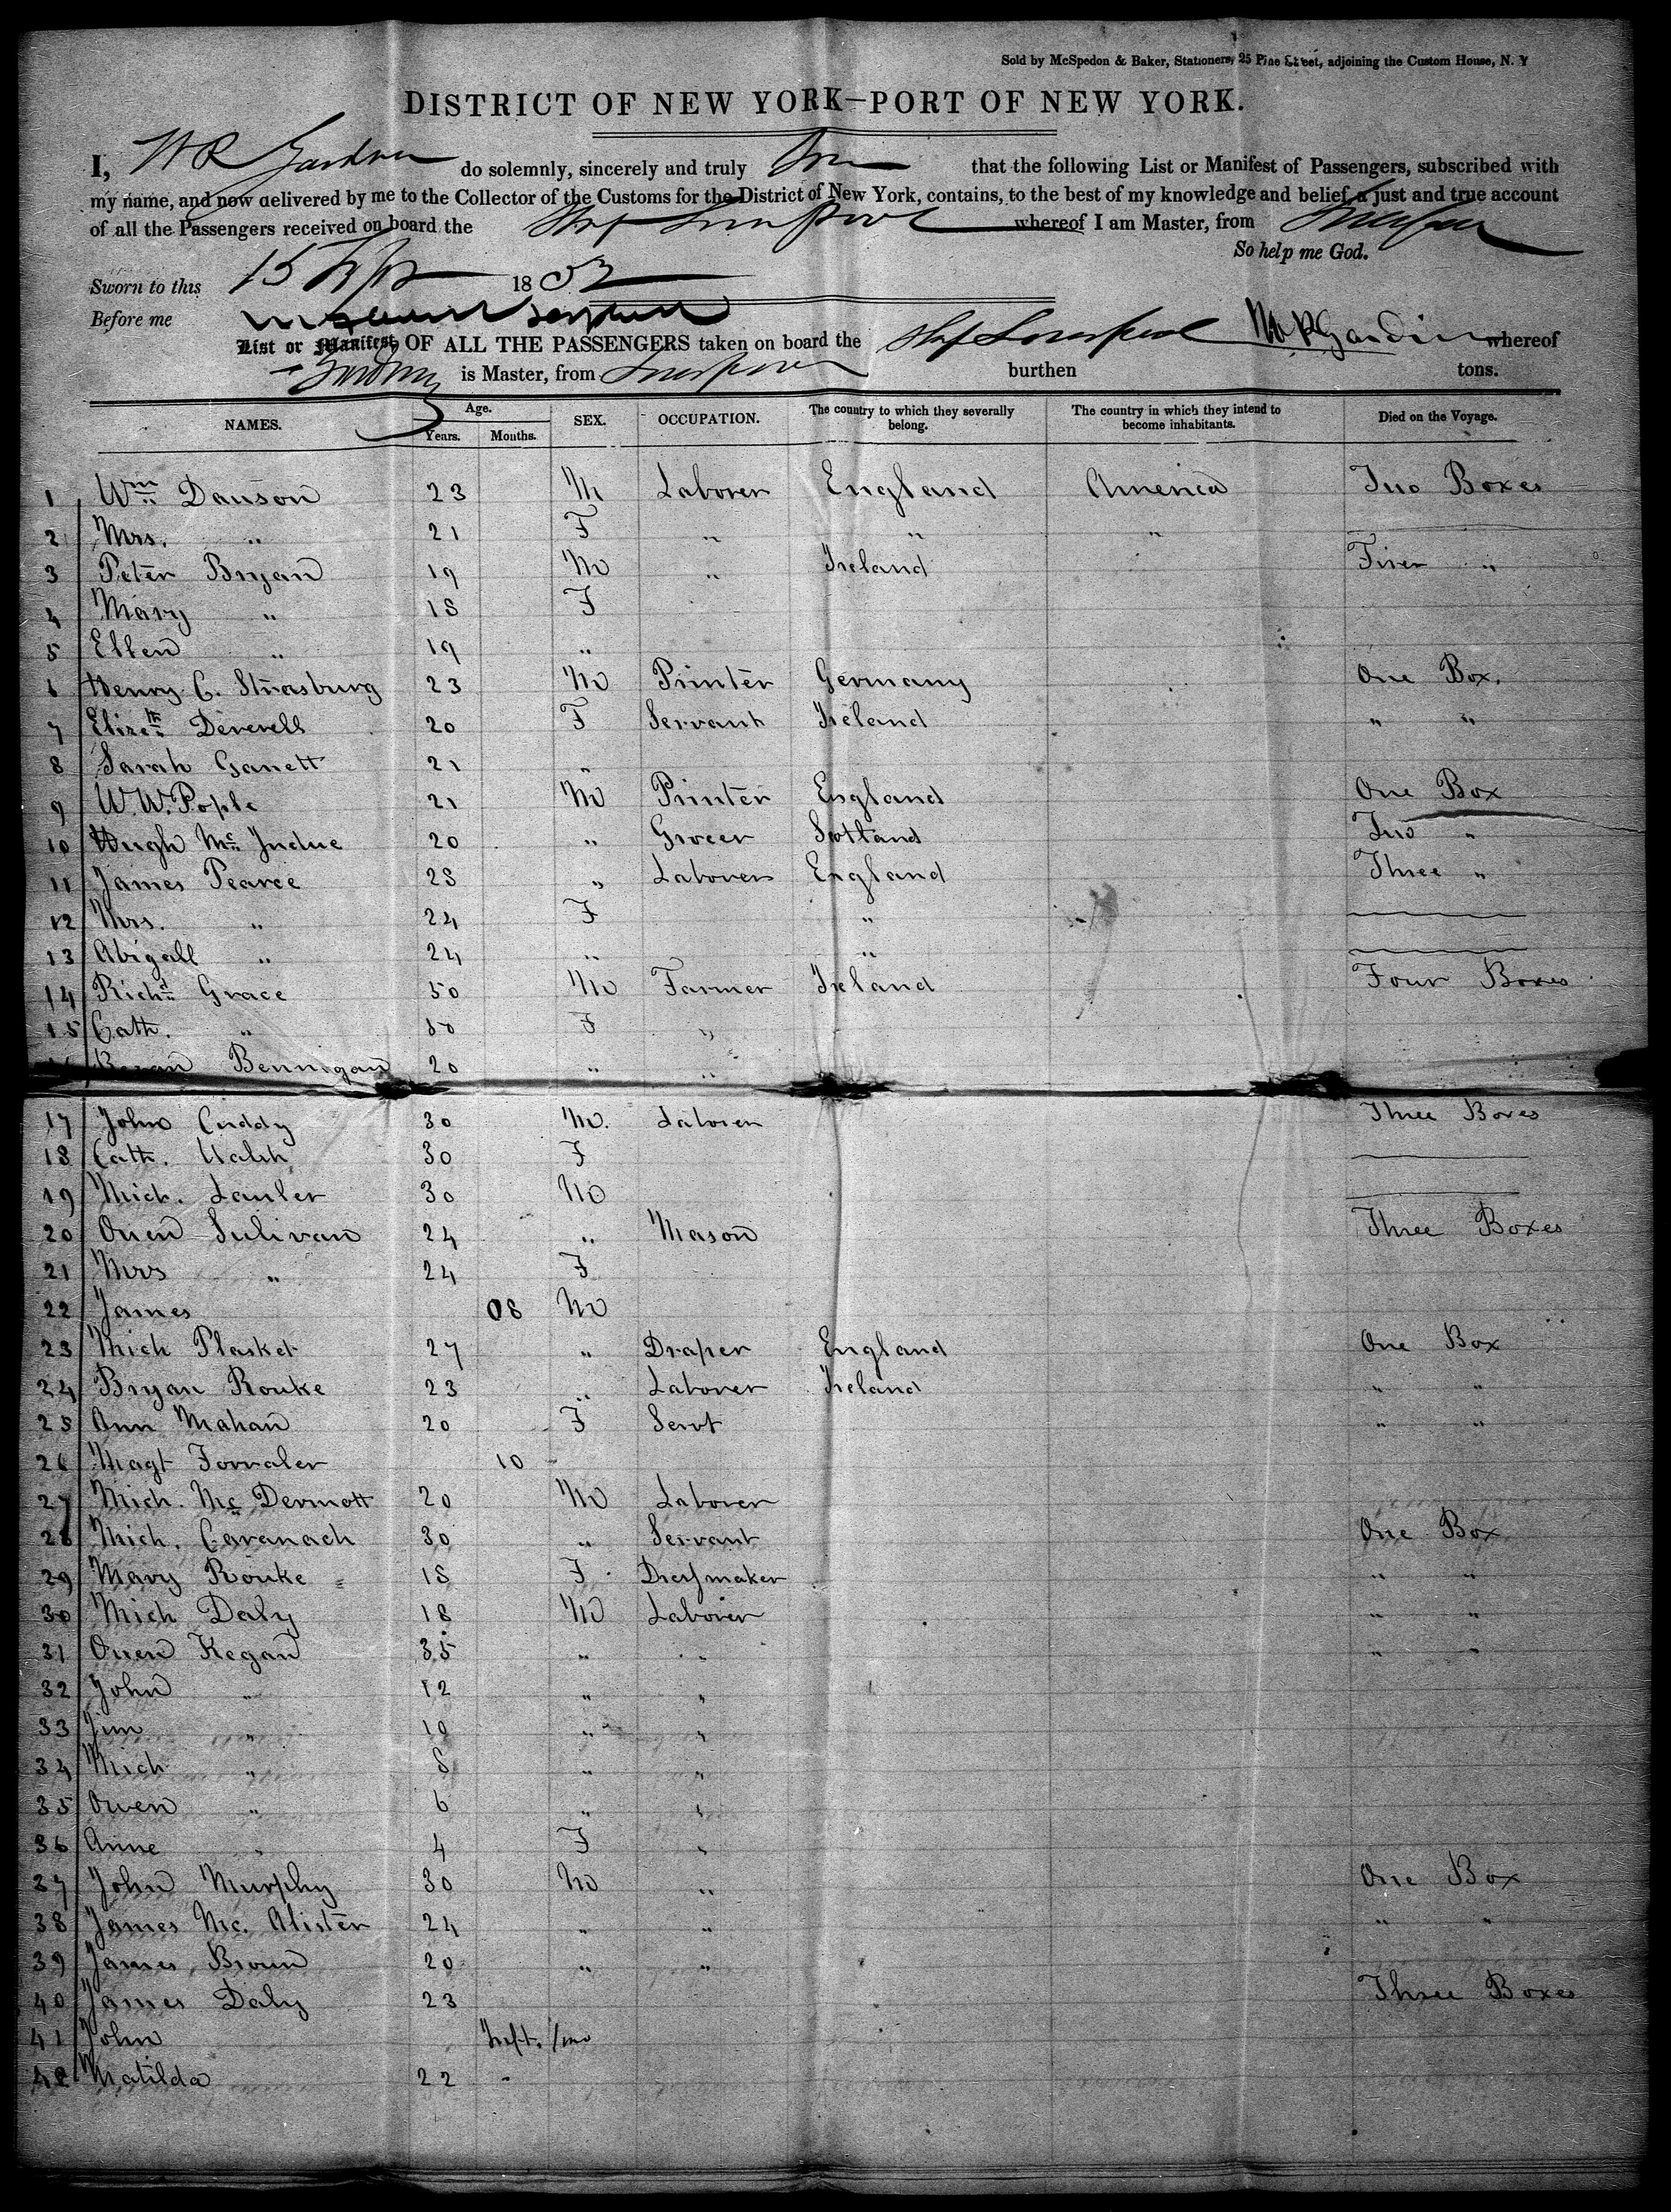 Sold by McSpedon & Baker, Stationers, 25 Pine Street, adjoining the Custom House, N. Y
DISTRICT OF NEW YORK—PORT OF NEW YORK.
I, W R Gardner do solemnly, sincerely and truly that the following List or Manifest of Passengers, subscribed with
my name, and now delivered by me to the Collector of the Customs for the District of New York, contains, to the best of my knowledge and belief, a just and true account
of all the Passengers received on board the Ship Liverpool whereof I am Master, from Liverpool
So help me God.
Sworn to this 15 1852
Before me
List or Manifest, OF ALL THE PASSENGERS taken on board the Ship Liverpool W R Gardner whereof
Gardner is Master, from Liverpool burthen tons.
NAMES. Age. Years. Months. SEX. OCCUPATION. The country to which they severally belong. The country in which they intend to become inhabitants. Died on the Voyage.
1 Wm Dauson 23 M Laborer England America Two Boxes
2 Mrs. " 21 F " " "
3 Peter Bryan 19 M " Ireland "
4 Mary " 18 F
5 Ellen " 19 "
6 Henry C. Strasburg 23 M Printer Germany One Box.
7 Elizth Deverell 20 F Servant Ireland " "
8 Sarah Ganett 21 "
9 W. W. Pople 21 M Printer England One Box
10 Hugh Mc 20 " Grocer Scotland Two "
11 James Pearce 28 " Laborer England Three "
12 Mrs. " 24 F "
13 Abigall " 24 " "
14 Richd Grace 50 M Farmer Ireland Four Boxes
15 Cath. " 50 F "
Bennigan 20 " "
17 John Cuddy 30 M. Laborer Three Boxes
18 Cath. Walsh 30 F
19 Mich. Lauler 30 M
20 Owen Sulivan 24 " Mason Three Boxes
21 Mrs " 24 F
22 James 08 M
23 Mich Plasket 27 " Draper England One Box
24 Bryan Rouke 23 " Laborer Ireland " "
25 Ann Mahan 20 F Servt " "
26 Magt 10
27 Mich. Mc Dermott 20 M Laborer
28 Mich. Cavanach 30 " Servant One Box
29 Mary Rouke 18 F Dressmaker " "
30 Mich Daly 18 M Laborer " "
31 Owen Kegan 35 " " " "
32 John " 12 " "
33 Jim " 10 " "
34 Mich " 8 " "
35 Owen " 6 " "
36 Anne " 4 F "
37 John Murphy 30 M " One Box
38 James Mc. Alister 24 " " " "
39 James Broun 20 " "
40 James Daly 23 Three Boxes
41 John Inft.
42 Matilda 22 "